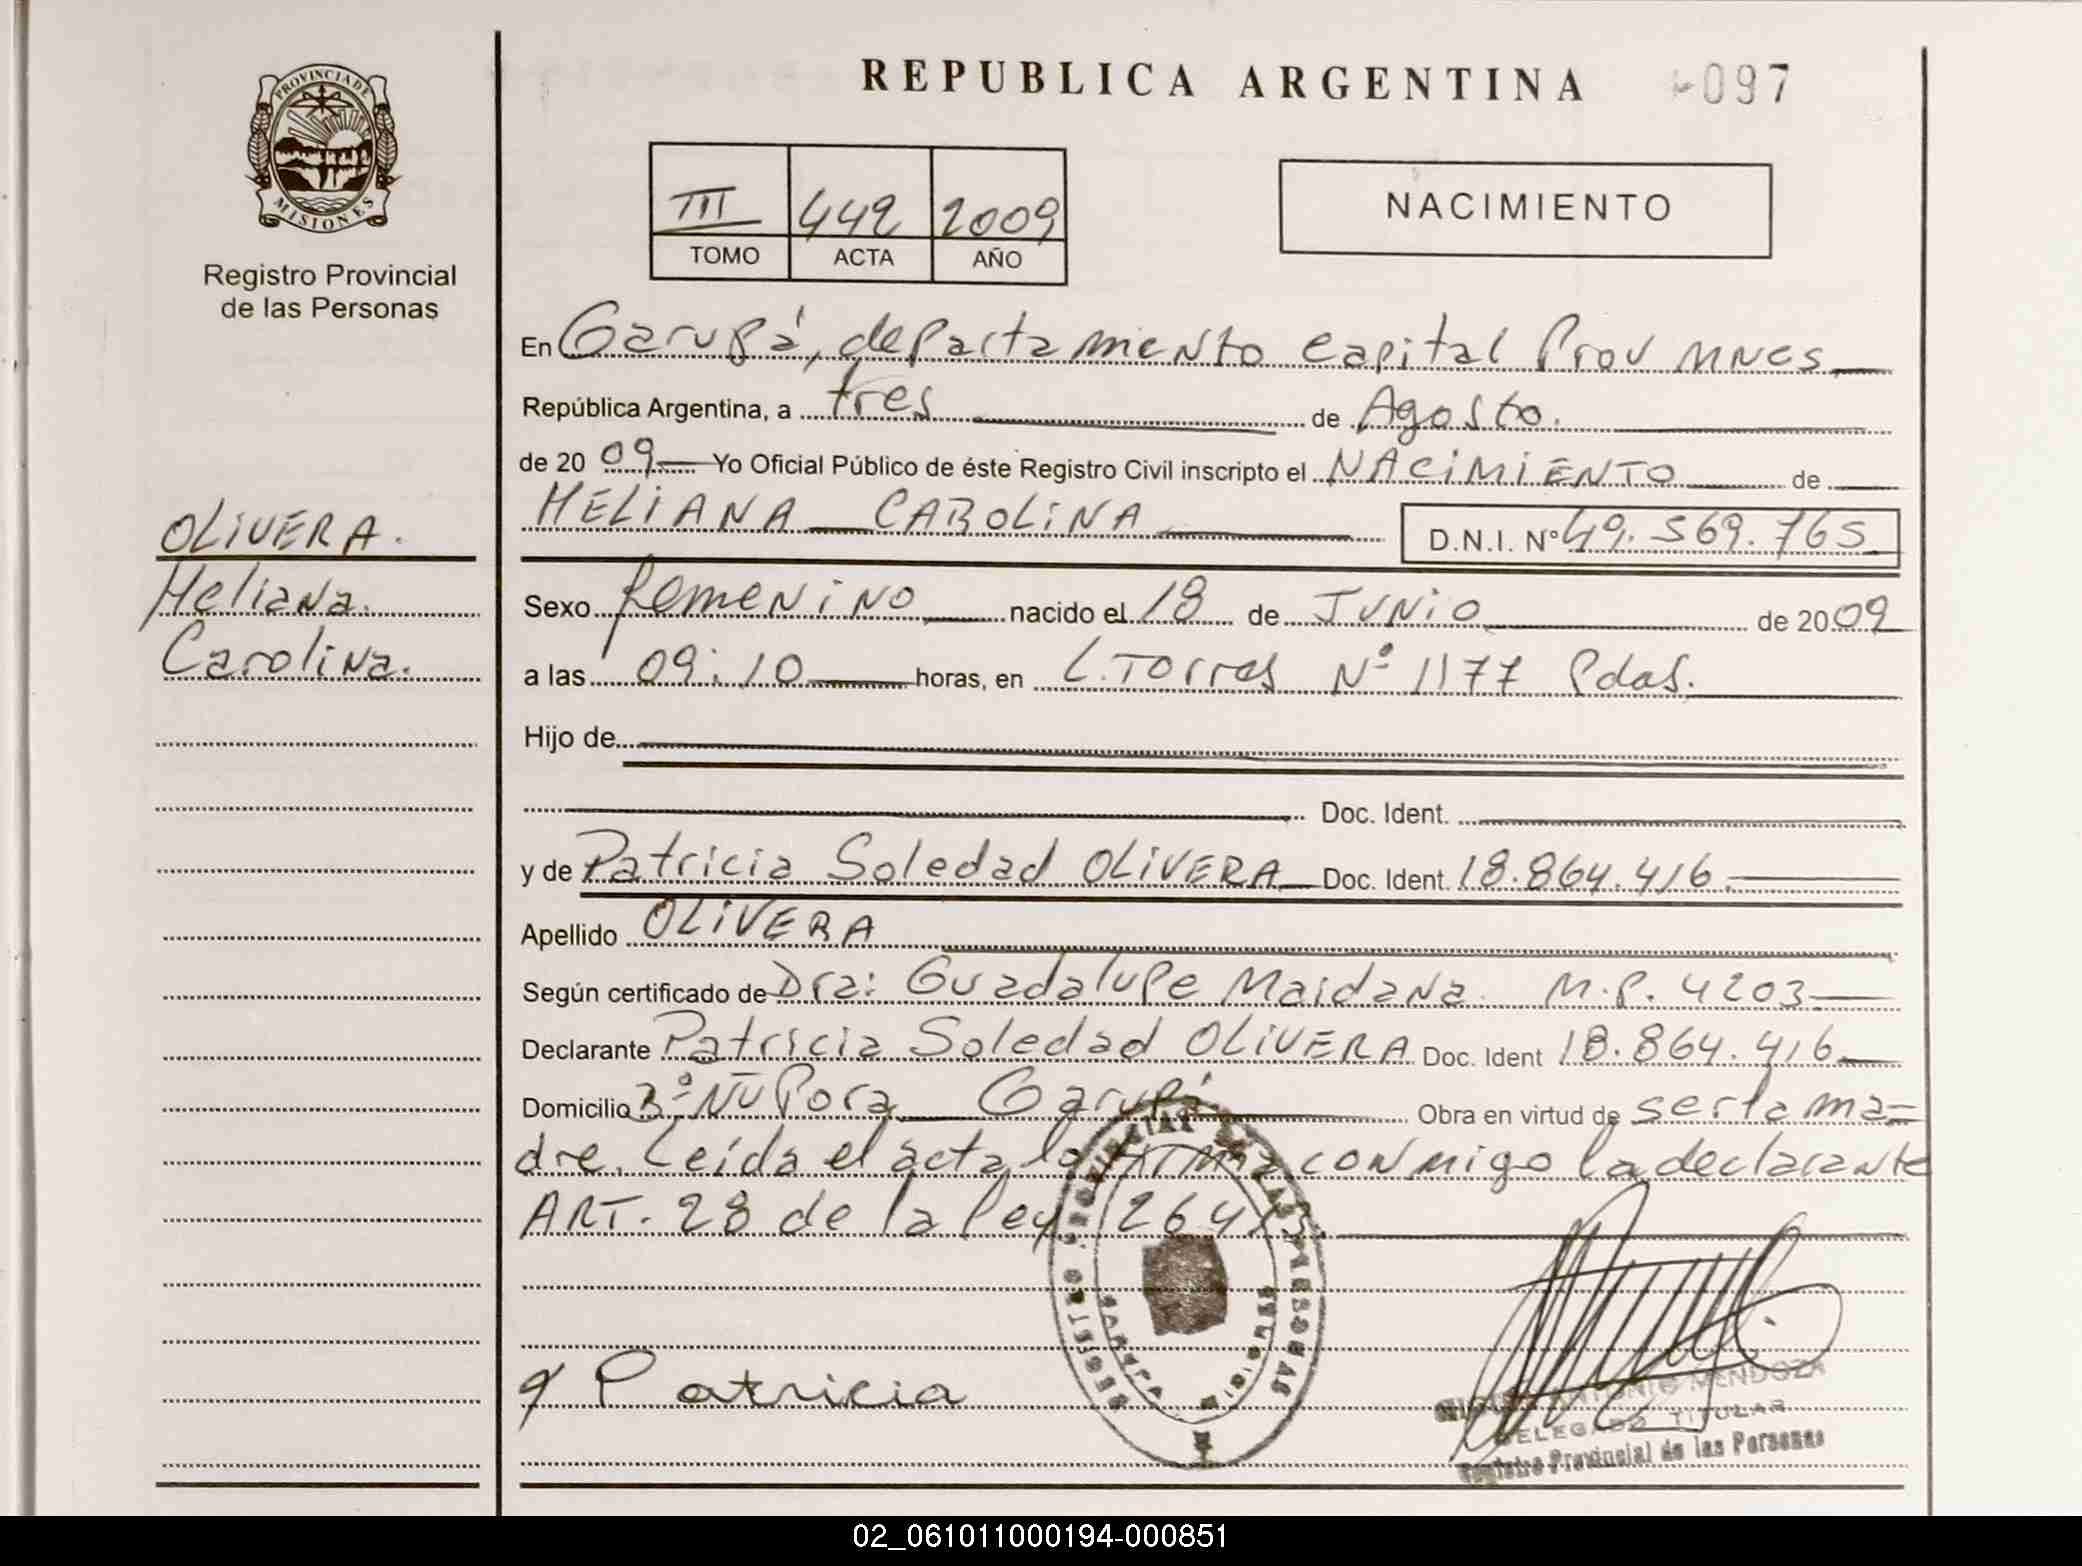 REPUBLICA ARGENTINA 097
PROVINCIA DE
MISIONES
Registro Provincial
de las Personas
III 442 2009
TOMO ACTA AÑO
NACIMIENTO
En Garupá, departamento capital Prov MNES
República Argentina, a tres de Agosto.
de 2009 Yo Oficial Público de éste Registro Civil inscripto el NACIMIENTO de
MELIANA CAROLINA D.N.I. Nº 49.569.765
OLIVERA.
Meliana
Carolina.
Sexo femenino nacido el 18 de Junio de 2009
a las 09:10 horas, en L. Torres Nº 1177 Pdas.
Hijo de
Doc. Ident.
y de Patricia Soledad OLIVERA Doc. Ident. 18.864.416.
Apellido OLIVERA
Según certificado de Dra: Guadalupe Maidana M.P. 4203
Declarante Patricia Soledad OLIVERA Doc. Ident 18.864.416
Domicilio Bº Ñu Pora Garupá Obra en virtud de ser la ma-
dre. Leída el acta la firma conmigo la declarante
ART. 28 de la ley 26413.
Patricia
REGISTRO PROVINCIAL DE LAS PERSONAS
GARUPA MISIONES
ANTONIO MENDOZA
DELEGADO TITULAR
Registro Provincial de las Personas
02_061011000194-000851